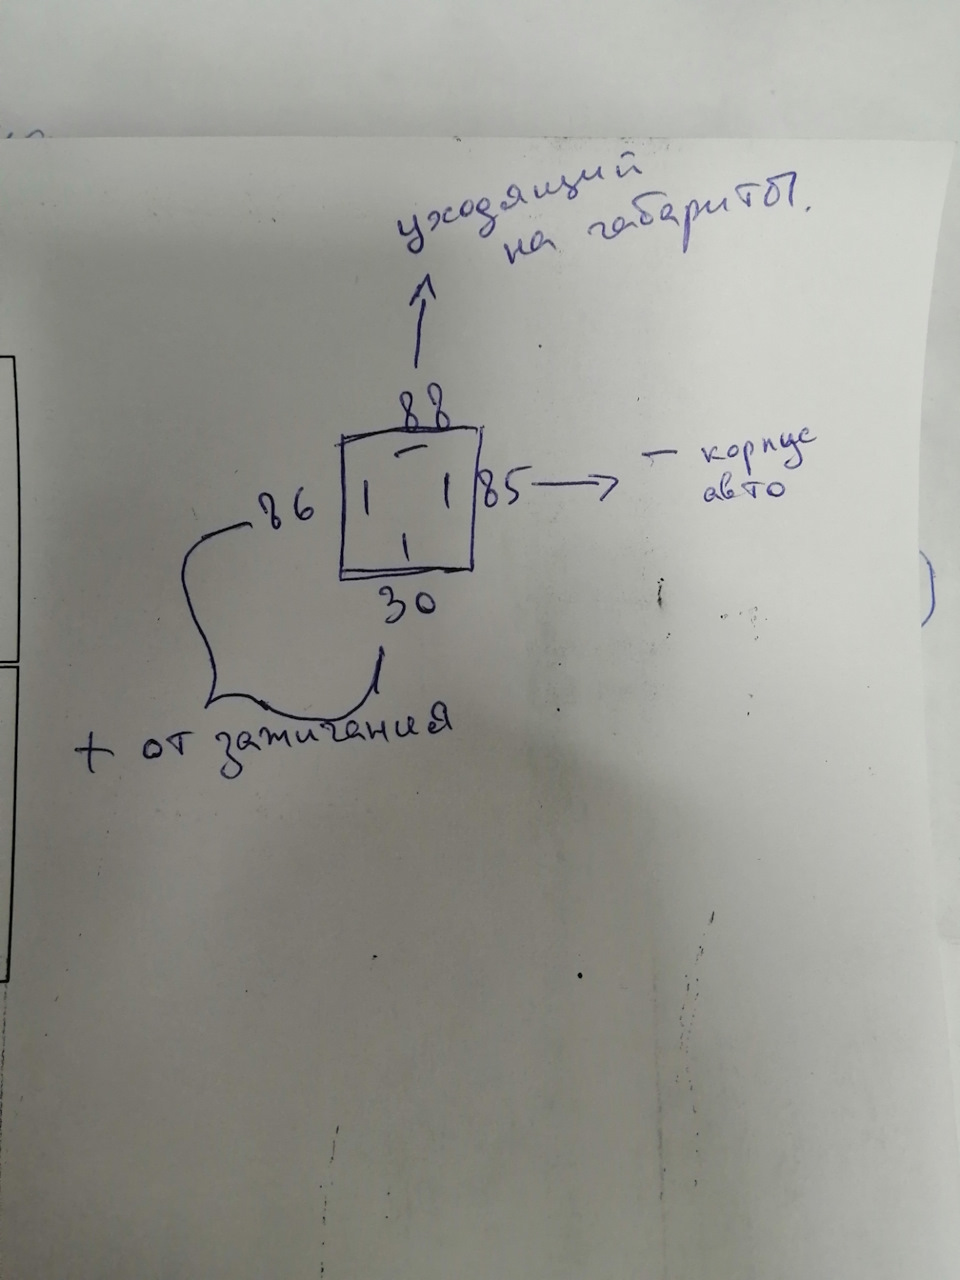 уходящий
на габариты.
88
86
85
– корпус
авто
30
+ от зажигания